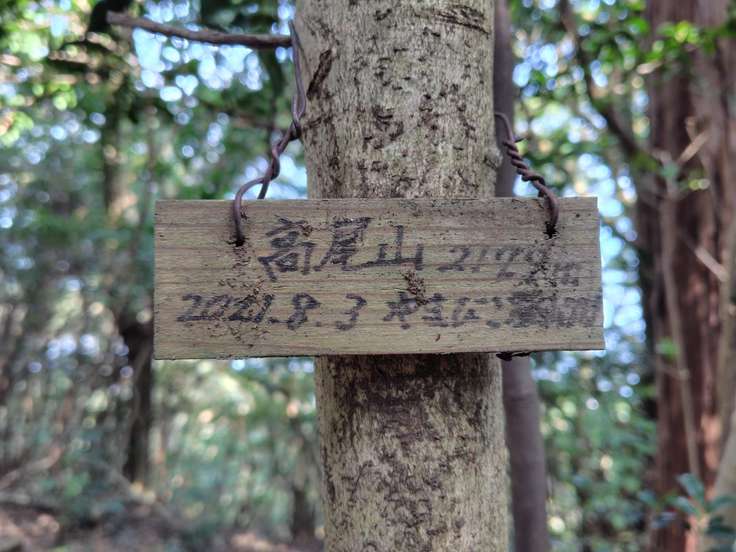 高尾山 217.9m
2021.8.3 やまに